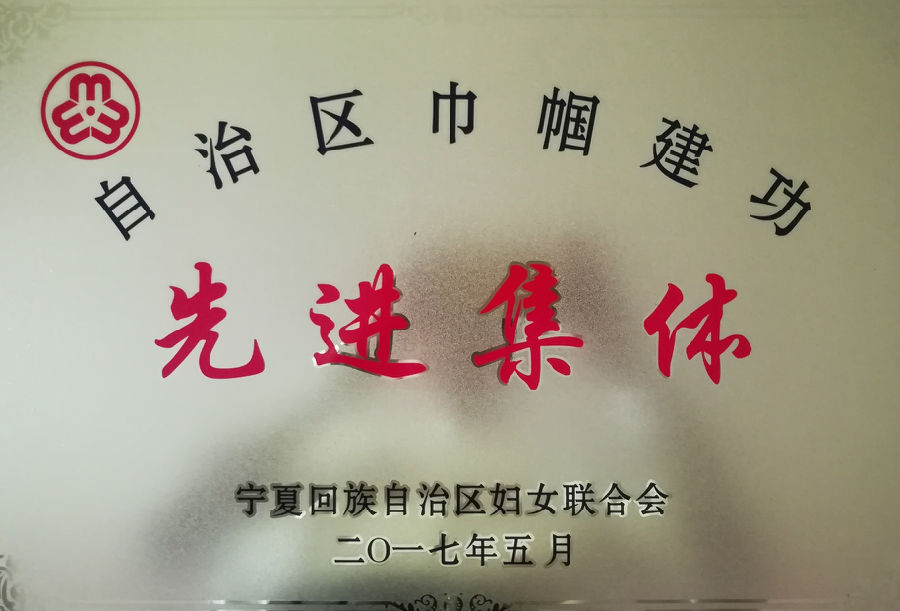 自治区巾帼建功
先进集体
宁夏回族自治区妇女联合会
二〇一七年五月